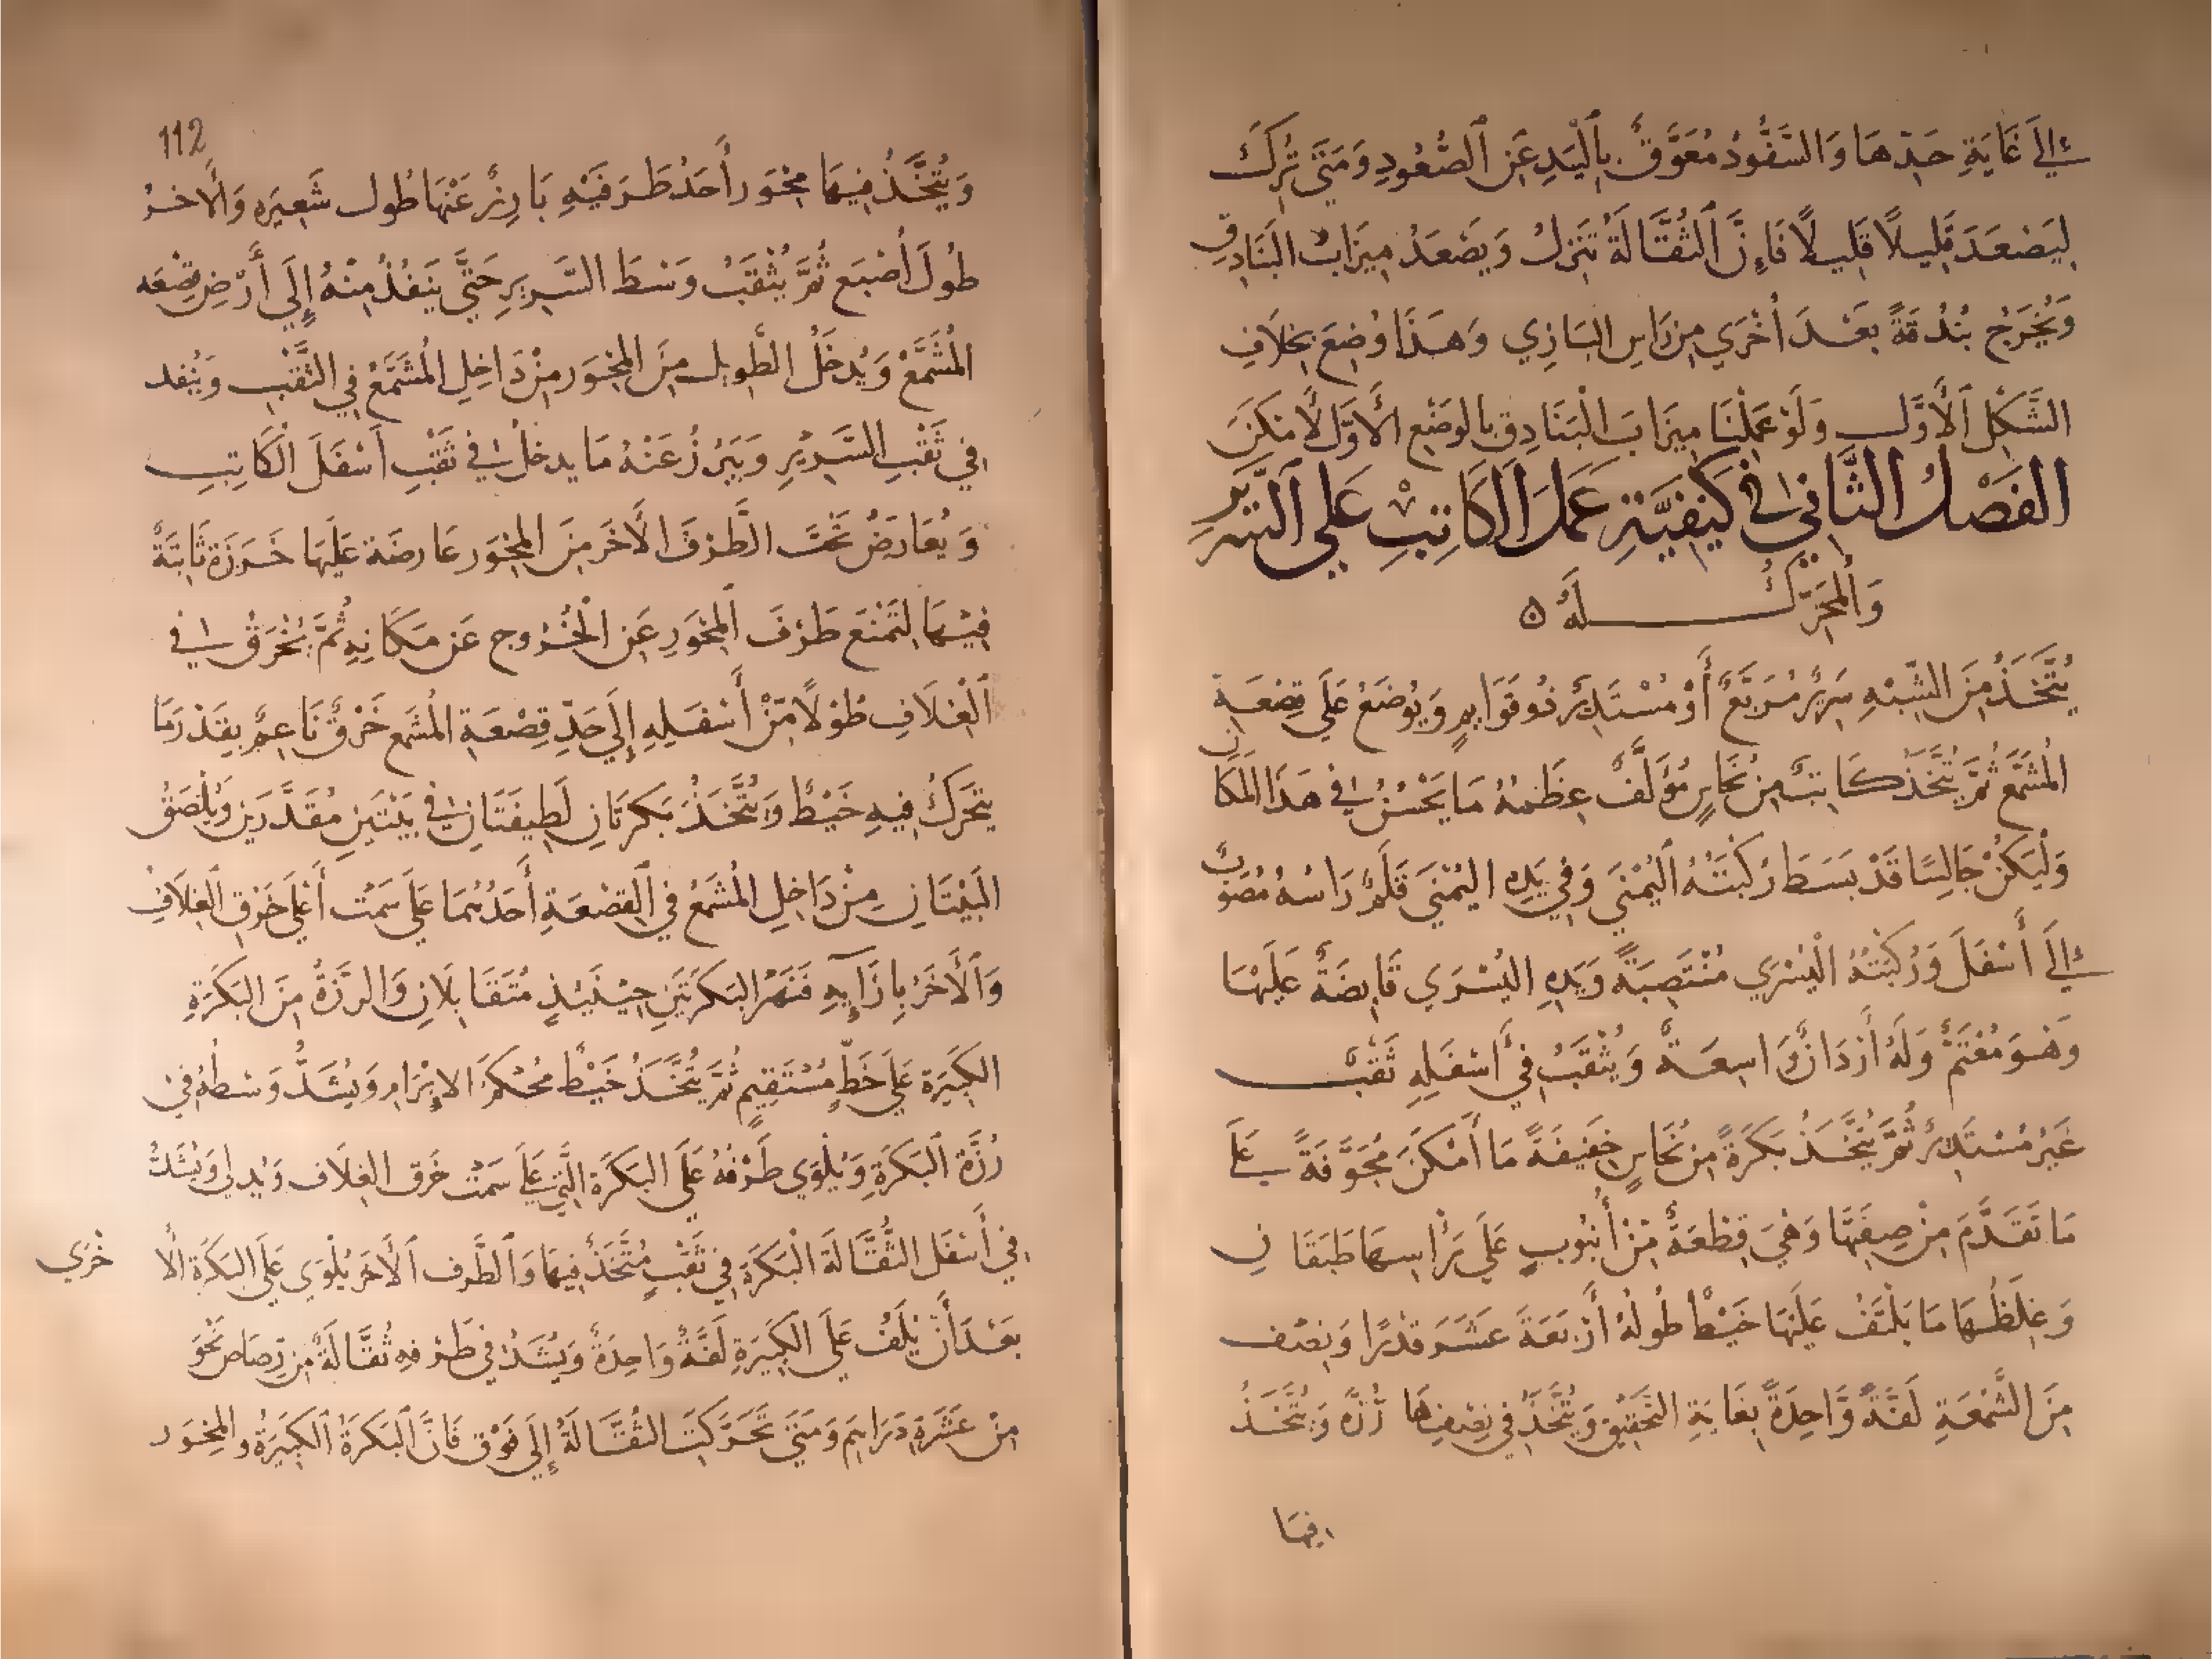 إِلَى غَايَةِ حَدِّهَا وَالسَّفُّودُ مُعَوَّقٌ بِالْيَدِ عَنِ الصُّعُودِ وَمَتَى تُرِكَ
لِيَصْعَدَ قَلِيلًا قَلِيلًا فَإِنَّ الثَّقَّالَةَ تَنْزِلُ وَيَصْعَدُ مِيزَابُ الْبَنَادِقِ
وَتَخْرُجُ بُنْدُقَةً بَعْدَ أُخْرَى مِن رَاسِ البَازِي وَهَذَا وُضِعَ بِخِلَافِ
الشَّكْلِ الْأَوَّلِ وَلَوْ عَمِلْنَا مِيزَابَ الْبَنَادِقِ بِالوَضْعِ الأَوَّلِ لَأَمْكَنَ
الفَصْلُ الثَّانِي فِي كَيْفِيَّةِ عَمَلِ الْكَاتِبِ عَلَى السَّرِيرِ
وَالْمُحَرِّكُ لَهُ ه
يُتَّخَذُ مِنَ الشَّبَهِ سَرِيرٌ مُرَبَّعٌ أَوْ مُسْتَدِيرٌ ذُو قَوَايِمٍ وَيُوضَعُ عَلَى قِصْعَةِ
الْمُشَمَّعِ ثُمَّ يُتَّخَذُ كَاتِبٌ مِن نُحَاسٍ مُؤَلَّفٌ عِظَمُهُ مَا يَحْسُنُ فِي هَذَا الْمَكَانِ
وَلْيَكُنْ جَالِسًا قَدْ بَسَطَ رُكْبَتَهُ الْيُمْنَى وَفِي يَدِهِ الْيُمْنَى قَلَمٌ رَاسُهُ مُصَوَّبٌ
إِلَى أَسْفَلَ وَرُكْبَتُهُ الْيُسْرَى مُنْتَصِبَةٌ وَيَدِهِ الْيُسْرَى قَابِضَةٌ عَلَيْهَا
وَهُوَ مُعْتَمٌّ وَلَهُ أَرْدَانٌ وَاسِعَةٌ وَيُثْقَبُ فِي أَسْفَلِهِ ثَقْبٌ
غَيْرُ مُسْتَدِيرٍ ثُمَّ يُتَّخَذُ بَكَرَةً مِن نُحَاسٍ خَفِيفَةً مَا أَمْكَنَ مُجَوَّفَةً عَلَى
مَا تَقَدَّمَ مِنْ صِفَتِهَا وَهِيَ قِطْعَةٌ مِنْ أُنْبُوبٍ عَلَى رَأْسِهَا طَبَقَانِ
وَغِلَظُهَا مَا يَلْتَفُّ عَلَيْهَا خَيْطٌ طُولُهُ أَرْبَعَةَ عَشَرَ قَدْرًا وَنِصْف
مِنَ الشَّمْعَةِ لَفَّةً وَّاحِدَةً بِغَايَةِ التَّحْقِيقِ وَيُتَّخَذُ فِي نِصْفِهَا رُزَّة وَيُتَّخَذُ
فِيهَا
112
وَيُتَّخَذُ فِيهَا مِحْوَر أَحَدُ طَرَفَيْهِ بَارِزٌ عَنْهَا طُول شَعِيرَه وَالْآخَرُ
طُولَ أُصْبَع ثُمَّ يُثْقَبُ وَسْطَ السَّرِيرِ حَتَّى يَنْفُذُ مِنْهُ إِلَى أَرْضِ قِصْعَه
الْمُشَمَّعْ وَيُدْخَلُ الطَّوِيل مِنَ الْمِحْوَر مِنْ دَاخِلِ الْمُشَمَّعْ فِي الثَّقْبِ وَيُنْفد
فِي ثَقْبِ السَّرِيرِ وَيَبْرُزُ عَنْهُ مَا يدخلُ فِي ثَقْبِ أَسْفَلَ الْكَاتِبِ
وَيُعَارَضُ تَحْتَ الطَّرَفِ الْآخَرِ مِنَ الْمِحْوَرِ عَارِضَة عَلَيْهَا خَرَزَة ثَابِتَةٌ
فِيهَا لِتَمْنَعَ طَرَفَ الْمِحْوَرِ عَنِ الْخُرُوجِ عَن مَكَانِهِ ثُمَّ يُخْرَقُ فِي
الْغِلَافِ طُولًا مِّنْ أَسْفَلِهِ إِلَى حَدِّ قِصْعَةِ الْمُشَمع خَرْقٌ نَاعِمٌ بِقَدْرِ مَا
يَتَحَرَّكُ فِيهِ خَيْطٌ وَيُتَّخَذُ بَكَرَتَانِ لَطِيفَتَانِ فِي بَيْتَيْنِ مُقَدَّرَيْنِ وَيُلْصَقُ
الْبَيْتَانِ مِنْ دَاخِلِ الْمُشَمَّعُ فِي الْقِصْعَةِ أَحَدُهُمَا عَلَى سَمْتِ أَعْلَى خَرْقِ الْغِلَافِ
وَالْآخَرُ بِإِزَآيِهِ فَنَهْرُ البَكَرَتَيْنِ حِينَئِذٍ مُتَقَابِلَانِ وَالرَّزَّةُ مِنَ البَكَرَةِ
الكَبِيرَةِ عَلَى خَطٍّ مُسْتَقِيمٍ ثُمَّ يُتَّخَذُ خَيْطٌ مُحْكَمُ الابْرَامِ وَيُشَدُّ وَسْطُهُ فِي
رُزَّةِ الْبَكَرَةِ وَيُلْوَى طَرْفُهُ عَلَى البَكَرَة الَّتِي عَلَى سَمْتِ خَرْقِ الغِلَاف وَيُدلى وَيُشَدُّ
فِي أَسْفَل الثُّقَّالَة الْبَكَرَة فِي ثَقْبٍ مُتَّخَذٌ فِيهَا وَالطَّرَف الْآخَر يُلْوَى عَلَى البَكَرَة الْأُخْرَى
بَعْدَ أَنْ يُلَفَّ عَلَى الكَبِيرَةِ لَفَّةً وَاحِدَةً وَيُشَدُّ فِي طَرْفِهِ ثُقَّالَةٌ مِن رَصَاصٍ نَحْوَ
مِنْ عَشَرَةِ دَرَاهِم وَمَتَى تَحَرَّكَتِ الثُّقَّالَةُ إِلَى فَوْق فَإِنَّ الْبَكَرَةَ الْكَبِيرَةُ وَالْمِحْوَر